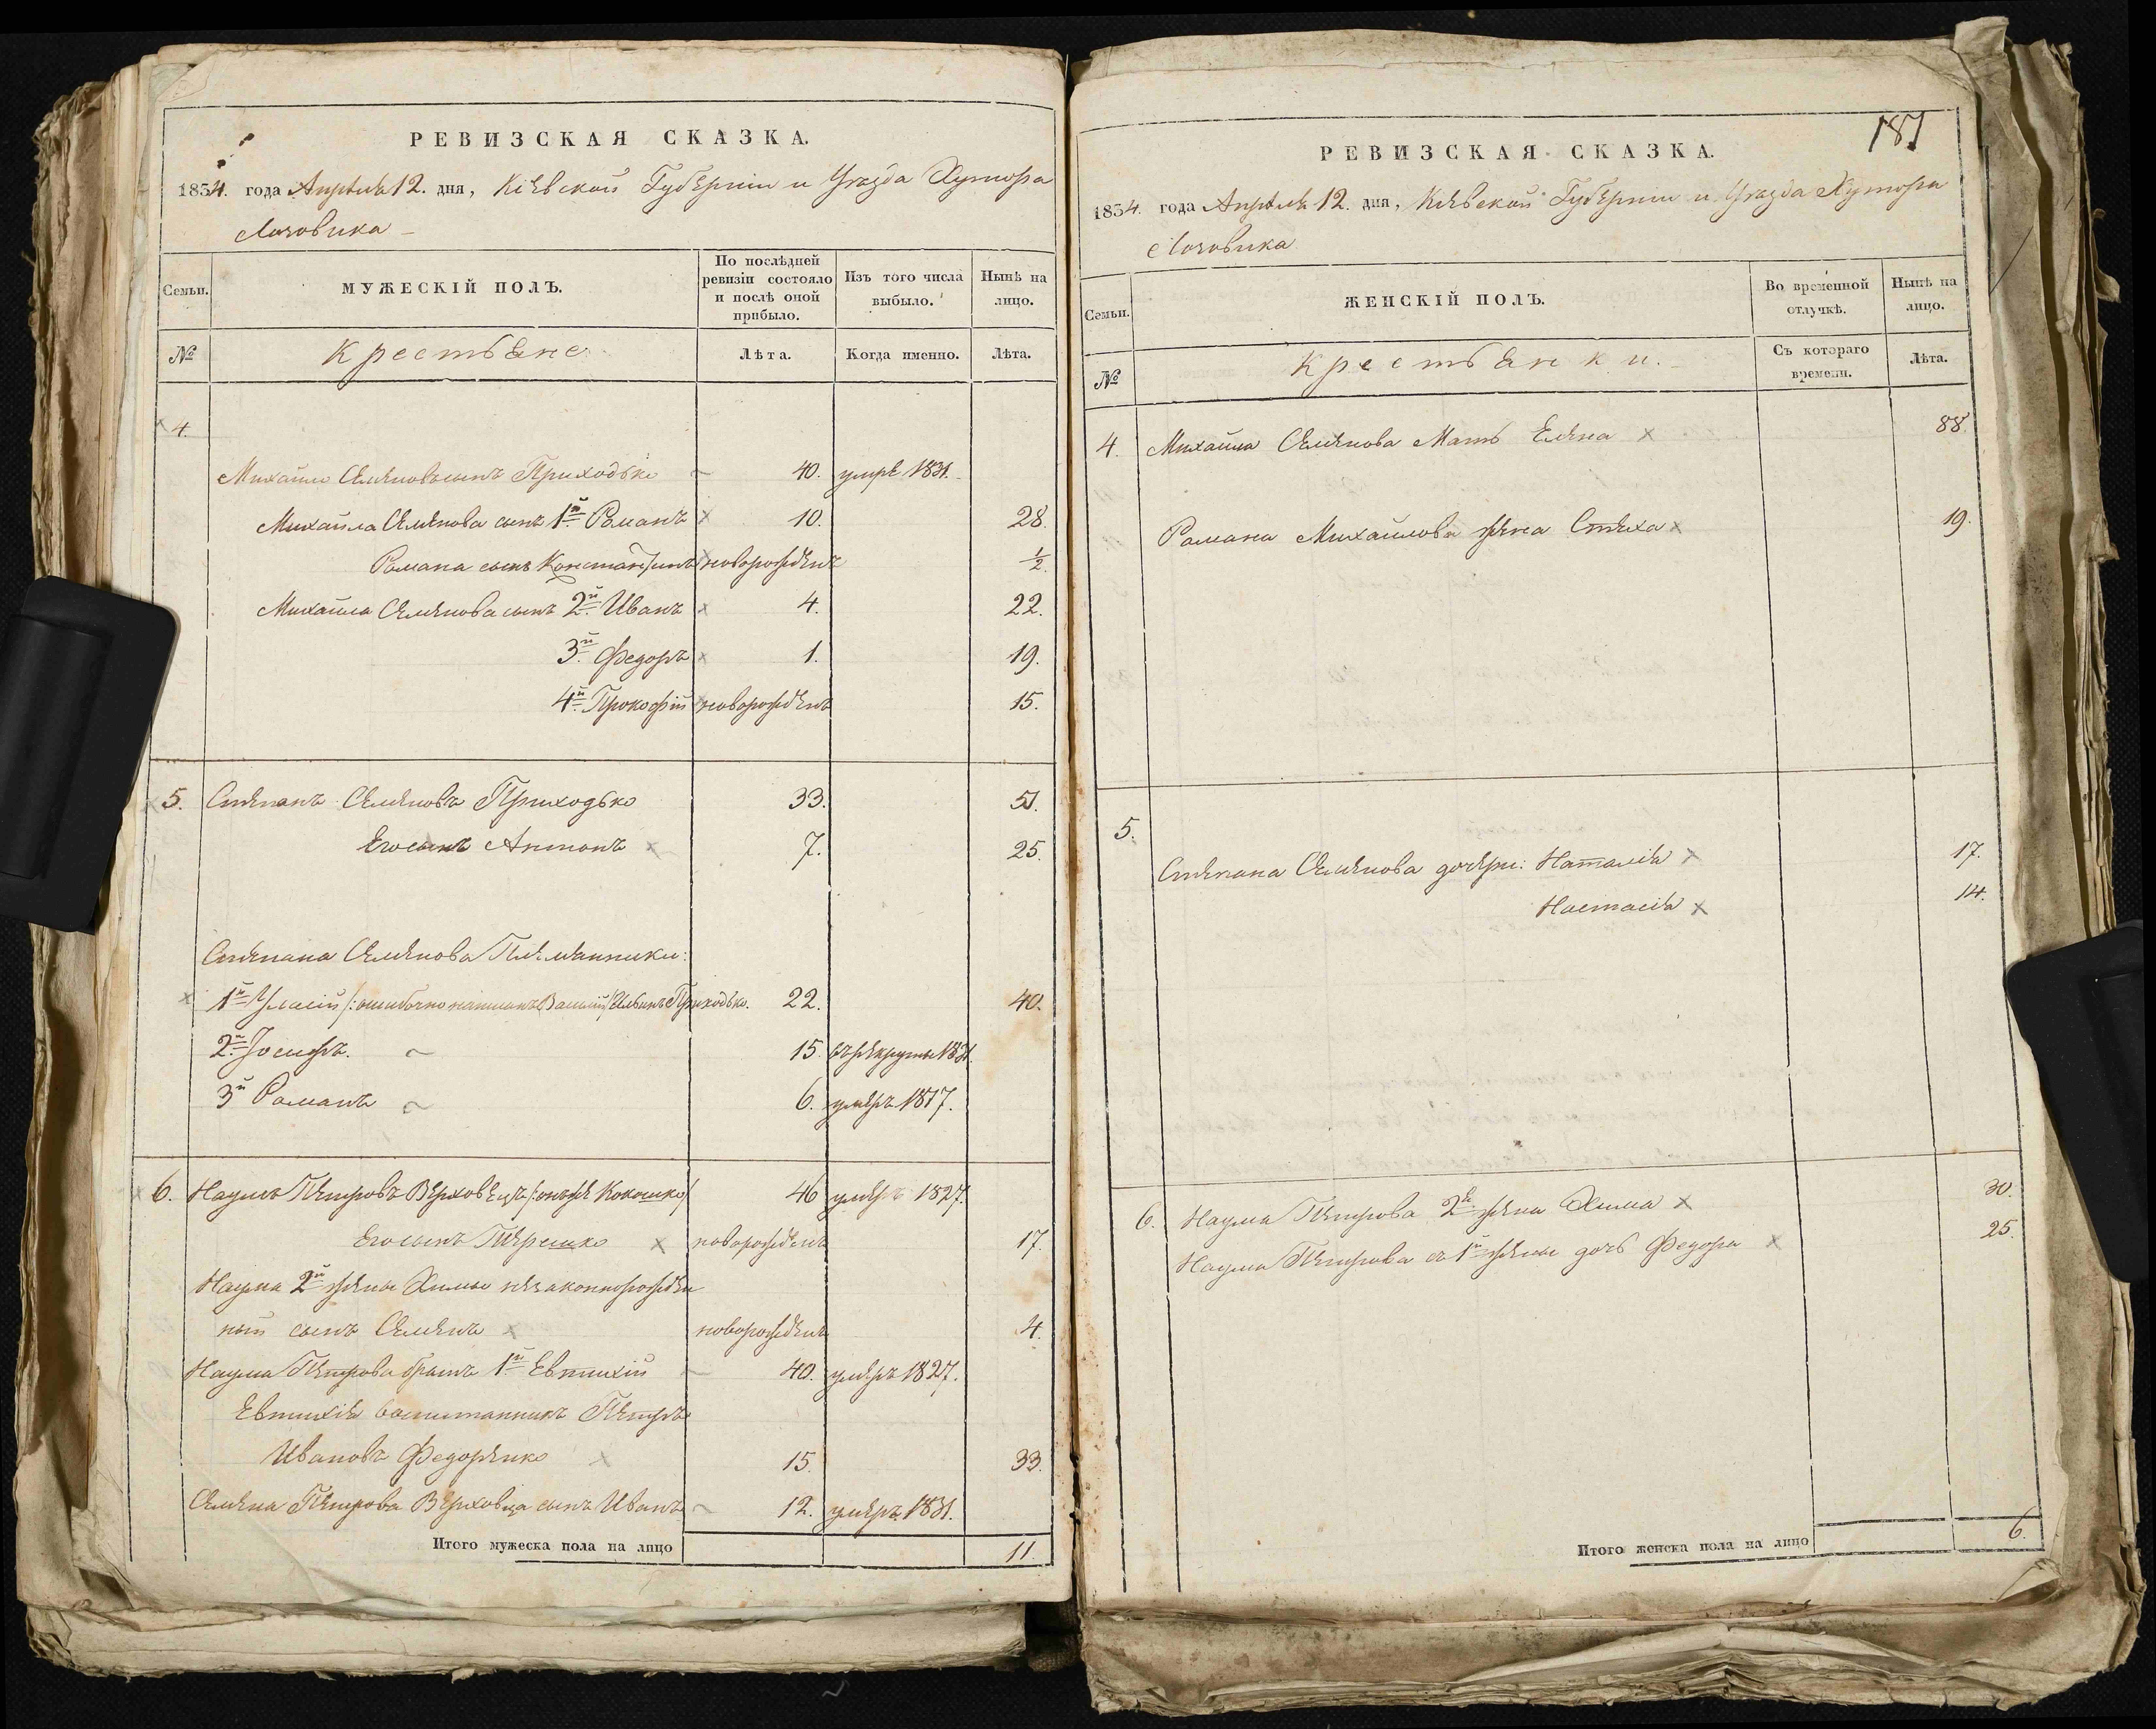 РЕВИЗСКАЯ СКАЗКА.
1834. года Апреля 12. дня, Кіевской Губерніи и Уезда Хутора
Лозовика
Семьи.
МУЖЕСКІЙ ПОЛЪ.
По послѣдней ревизіи состояло и послѣ оной прибыло.
Изъ того числа выбыло.
Нынѣ на лицо.
№
Крестьяне
Лѣта.
Когда именно.
Лѣта.
4.
Михайло Семеновъ сынъ Приходько 40. умре 1831.
Михайла Семенова сынъ 1й Романъ 10. 28.
Романа сынъ Константинъ новорожденъ ½.
Михайла Семенова сынъ 2й Иванъ 4. 22.
3й Федоръ 1. 19.
4й Прокофій новорожденъ 15.
5. Степанъ Семеновъ Приходько 33. 51.
Его сынъ Антонъ 7. 25.
Степана Семенова Племянники:
1й Уласій /: ошибочно написанъ Василій / Ильинъ Приходько. 22. 40.
2й Іосифъ. 15. въ рекруты 1831.
3й Романъ 6. умеръ 1817.
6. Наумъ Петровъ Верховецъ /: онъ же Кокошко / 46 умеръ 1827.
Его сынъ Терешко новорожденъ 17.
Наума 2й жены Химы незаконнорожден
ный сынъ Семенъ новорожденъ 4.
Наума Петрова братъ 1й Евтихій 40. умеръ 1827.
Евтихія воспитанникъ Петръ
Ивановъ Федоренко 15. 33.
Семена Петрова Верховца сынъ Иванъ 12. умеръ 1831.
Итого мужеска пола на лицо 11.
181
РЕВИЗСКАЯ СКАЗКА.
1834. года Апреля 12. дня, Кіевской Губерніи и Уезда Хутора
Лозовика
Семьи.
ЖЕНСКІЙ ПОЛЪ.
Во временной отлучкѣ.
Нынѣ на лицо.
№
Крестьянки.
Съ котораго времени.
Лѣта.
4. Михайла Семенова Мать Елена 88.
Романа Михайлова жена Стеха 19.
5.
Степана Семенова дочери: Наталія 17.
Настасія 14.
6. Наума Петрова 2я жена Хима 30.
Наума Петрова съ 1й жены дочь Федора 25.
Итого женска пола на лицо 6.